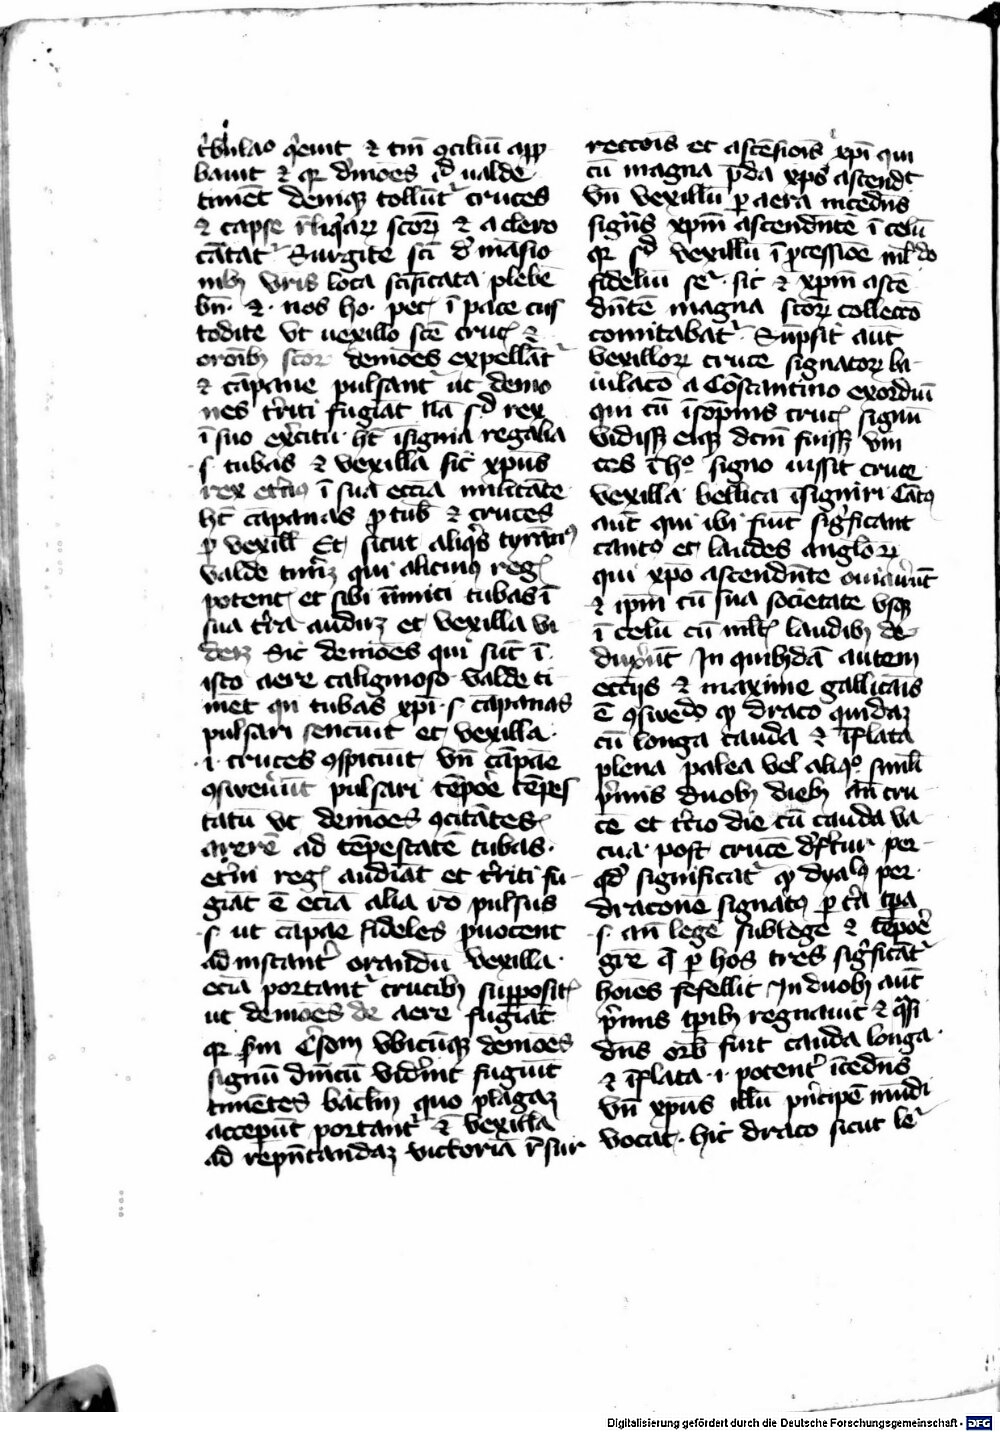 t͛bulac̄o q̄euit ⁊ tm̄ ꝯciliū app̄
bauit ⁊ qꝛ d̓mōes id̄ ualde
timēt deniqꝫ tollūt͛ cruces
⁊ capse r̄liq̓aꝝ sc̄oꝝ ⁊ a clero
cātat͛ Surgite sc̄i d̓ māsio
nibꝫ vr̄is loca sc̄ificata plebē
bn̄ · ⁊ · nos ho· pec̄ ī pace cus
todite vt uexillo sc̄e cruc̄ ⁊
or̄onibꝫ sc̄oꝝ demōes expellāt͛
⁊ cāpane pulsant͛ ut demo
nes t̓riti fugiāt Nā sꝰ rex
ī suo ex̓citu hꝫ īsignia regalia
·s· tubas ⁊ vexilla sic xp̄us
rex et̓nꝰ ī sua ecc̄ia militāte
hꝫ cāpanas p̄ tub̄ ⁊ cruces
p̄ vexill̄ Et sicut aliq̓s tyrānꝰ
valde timꝫ qn̄ alicuiꝰ reḡ
potent̄ et sibi īimici tubas ī
sua t̓ra audiꝫ et vexilla vi
deꝫ Sic demōes qui sūt ī
isto aere caliginoso valde ti
mēt qn̄ tubas xp̄i ·s· cāpanas
pulsari senciūt et vexilla
·i· cruces ꝯspiciūt vn̄ cāpāe
ꝯsweuer̄ūt pulsari tēpoꝛe tēpes
tatū vt demōes ꝯcitātes
aerē ad tēpestatē tubas
et̓ni reg̓ audiāt et t̓riti fu-
giāt Ē ecīa alia rō pulsus
·s· ut cāpāe fideles ꝓuocent
ad instant̓ orandū vexilla
ecīa portant͛ crucibꝫ supposit̄
ut demōes de aere fugiāt
qꝛ sm̄ Cr̓som vbicūqꝫ demōes
signū dn̄icū vid̓int fugiūt
timētes baclm̄ quo plagaꝫ
acceper̄ūt portant͛ ⁊ ē vexilla
ad rep̄n̄tandaꝫ victoriā r̄sur
reccōis et ascēsiōis xp̄i qui
cū magna p̄da xp̄s ascend̄t
vn̄ vexillū p̱ aera incedēs
sig̓t xp̄m ascendn̄tē ī celū
qꝛ sꝰ vexillū ī ꝓcessiōe ml̓tdo
fideliū seq̄͛ sic ⁊ xp̄m ascē
dn̄tē magna sc̄oꝝ collecc̄o
comitabat͛ Sūpsit aūt
vexilloꝝ cruce signatoꝝ ba-
iulac̄o a Cōstantino exordiū
qui cū ī sōpnis cruc̄ signū
vidissꝫ eiqꝫ dc̄m fuissꝫ vin
ces ī hͦ signo iussit cruce
vexilla bellica īsigniri Cātꝰ
aūt qui ibi fiūt sig̓ficant
cantꝰ et laudes angloꝝ
qui xp̄o ascendn̄te ouiauer̄ūt
⁊ ip̄m cū sua societate vsqꝫ
ī celū cū ml̓t̄ laudibꝫ de
duxer̄ūt In quibꝫdā autem
ecc̄ijs ⁊ maxime gallicāis
ē ꝯswedo qꝫ draco quidaꝫ
cū longa cauda ⁊ īflata
plena palea vel aliqͦ simili
p̓mis duobꝫ diebꝫ an̄ cru
cē et t̓cio die cū cauda va
cua post crucē d̓fert͛ ur per-
qd̓ significat͛ qꝫ dyabꝰ per
draconē signatꝰ p̱ t̓a tp̄a
·s· an̄ legē sub lege ⁊ tēpoꝛe
gr̄e q̄ p̱ hos tres sig̓ficāt͛
hoīes fefellit In duobꝫ aūt
p̓mis tp̄ibꝫ regnauit ⁊ q̓si
dn̄s orb̄ fuit cauda longa
⁊ īflata ·i· potent̓ īcedēs
vn̄ xp̄us illū p̓ncipē mūdi
vocat· hic draco sicut le͛